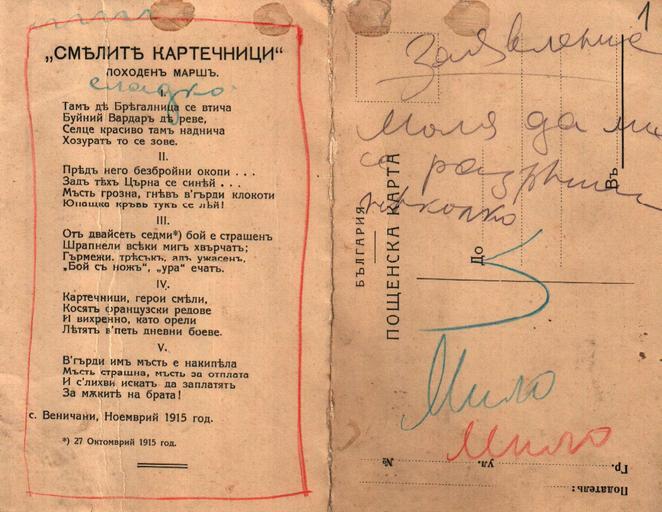 „СМѢЛИТѢ КАРТЕЧНИЦИ“
ПОХОДЕНЪ МАРШЪ.
сладко
I.
Тамъ дѣ Брѣгалница се втича
Буйний Вардаръ дѣ реве,
Селце красиво тамъ наднича
Хозуратъ то се зове.
II.
Прѣдъ него безбройни окопи . . .
Задъ тѣхъ Църна се синѣй . . .
Мъсть грозна, гнѣвъ в'гърди клокоти
Юнашка кръвь тукъ се лѣй!
III.
Отъ двайсеть седми*) бой е страшенъ
Шрапнели всѣки мигъ хвърчатъ;
Гърмежи, трѣсъкъ, адъ ужасенъ,
„Бой съ ножъ“, „ура“ ечатъ.
IV.
Картечници, герои смѣли,
Косятъ французски редове
И вихренно, като орели
Лѣтятъ в'петь дневни боеве.
V.
В'гърди имъ мъсть е накипѣла
Мъсть страшна, мъсть за отплата
И с'лихви искатъ да заплатять
За мѫките на брата!
с. Веничани, Ноемврий 1915 год.
*) 27 Октомврий 1915 год.
1
Заявление
Моля да ми
се разрѣши
нѣколко
БЪЛГАРИЯ
ПОЩЕНСКА КАРТА
До
Въ
Мило
Мило
Гр. ул. №
Подателъ: